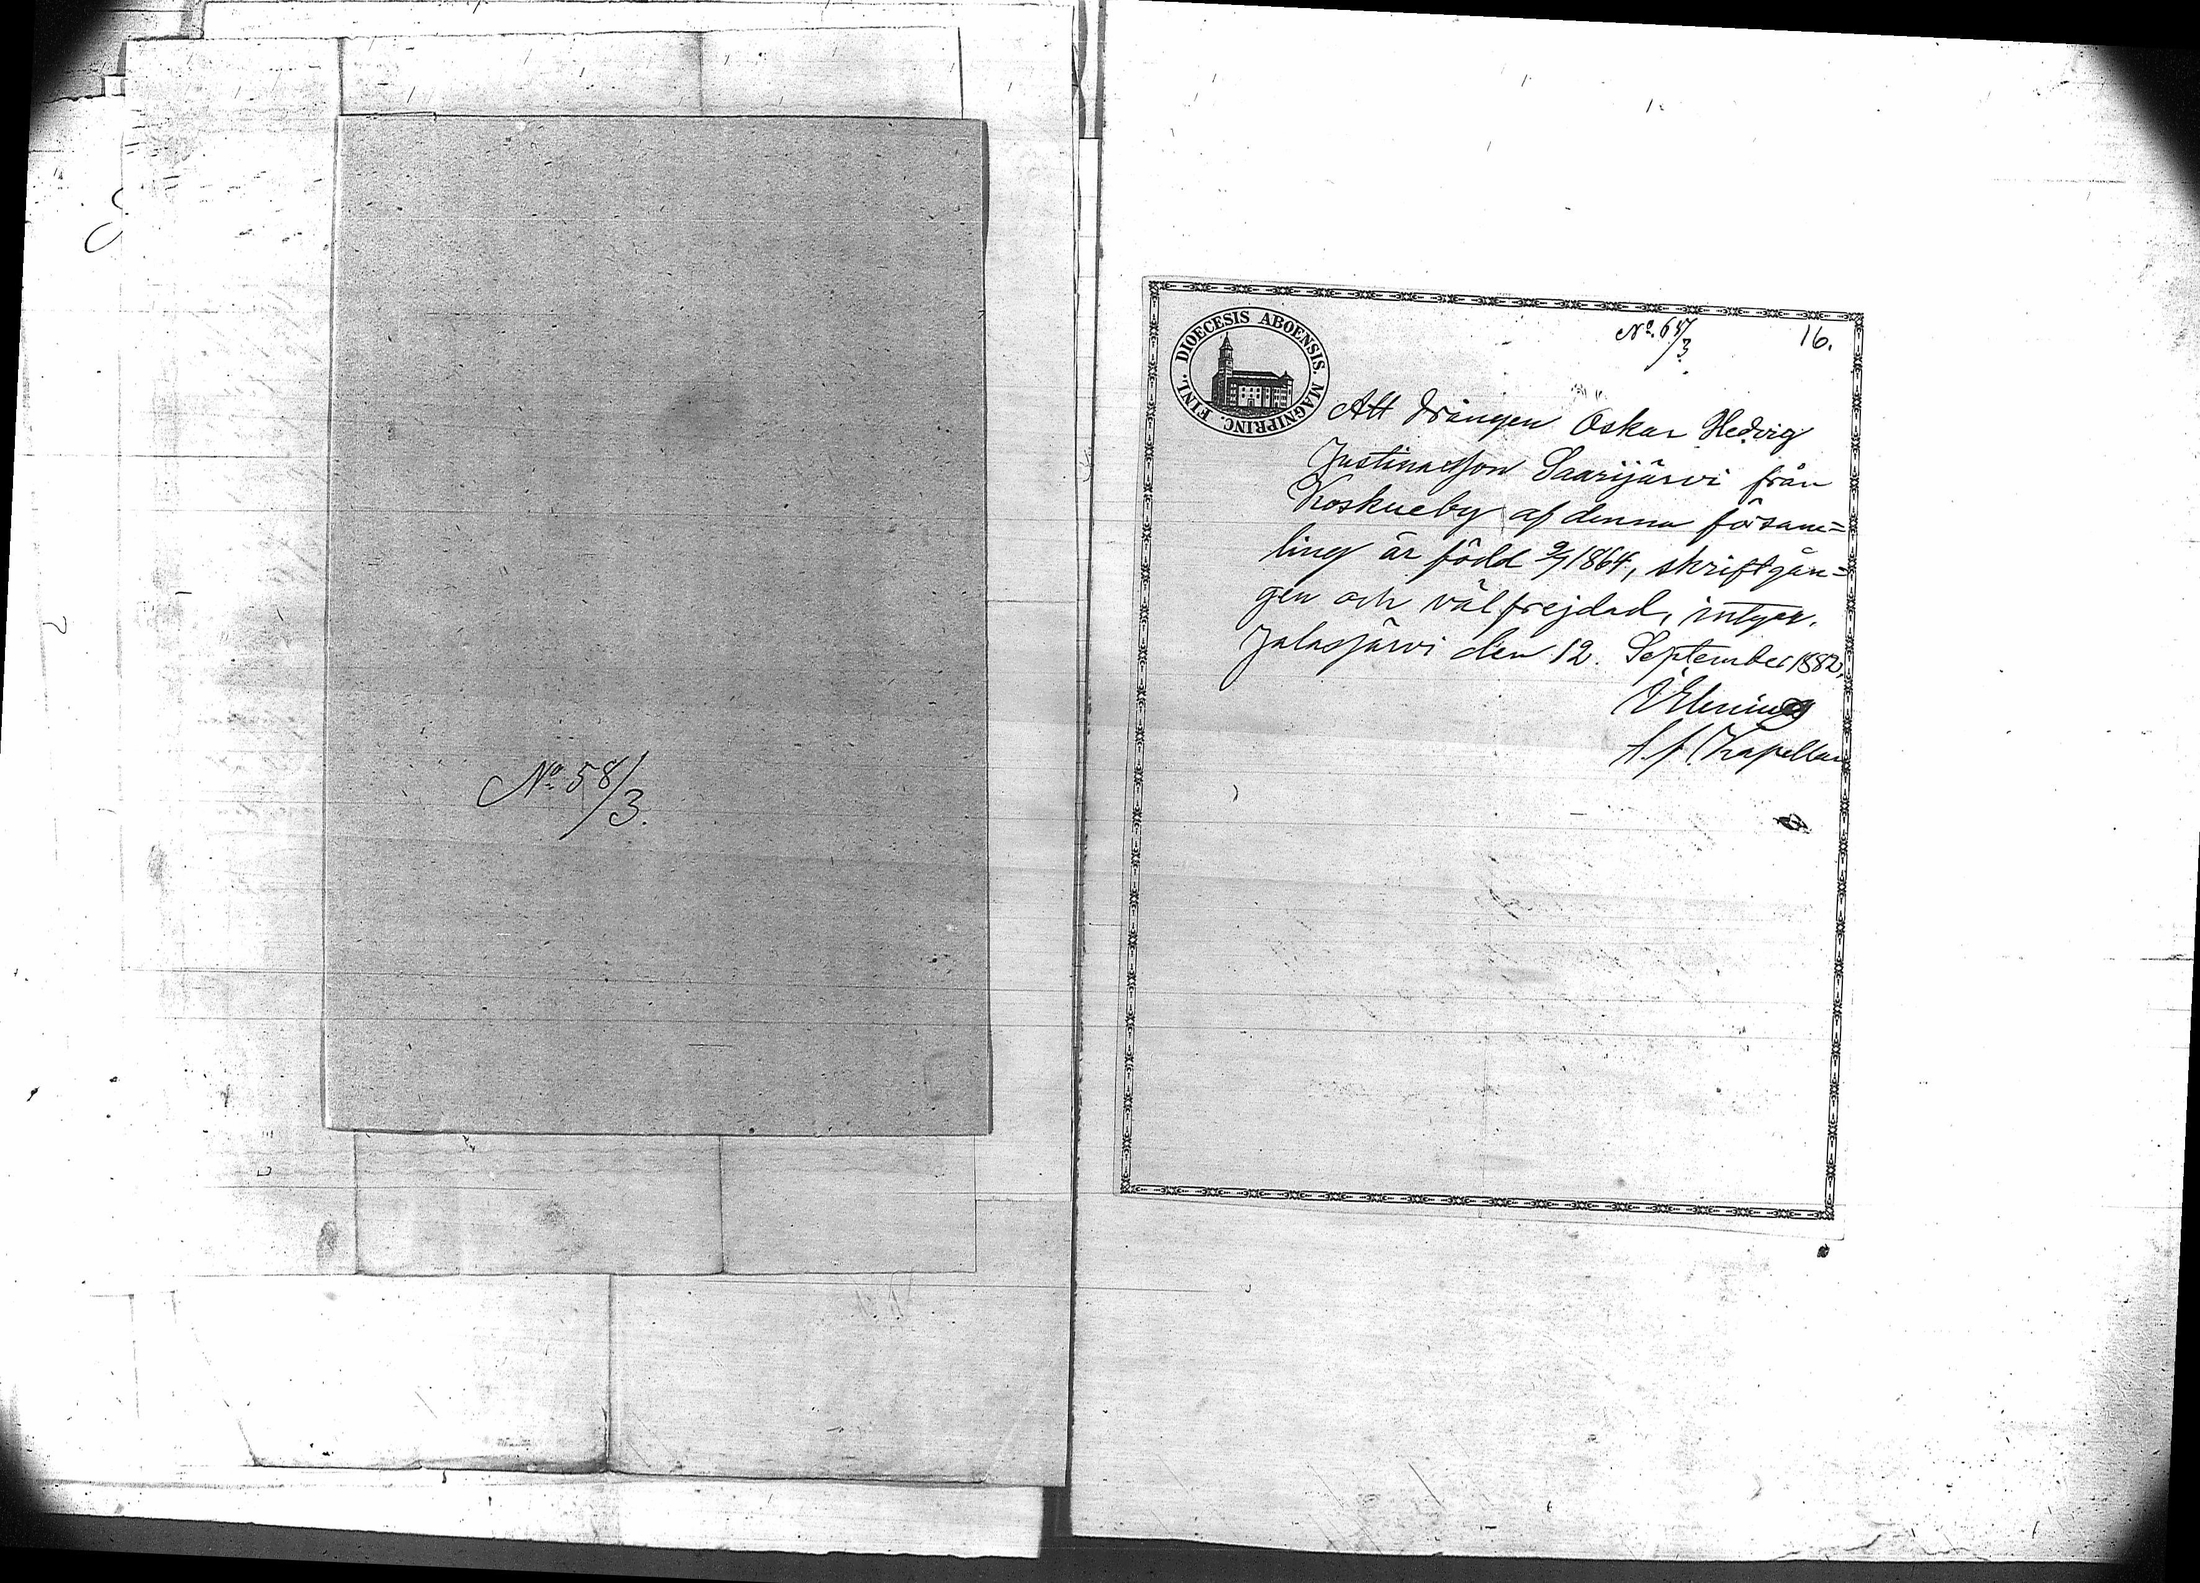 No 58/3.
No. 647/3
16.
DIOECESIS ABOENSIS. MAGNIPRINC. FINL.
Att drängen Oskar Hedvig
Justinasson Saarijärvi från
Koskueby af denna försam=
ling är född 9/7 1864, skriftgån=
gen och välfrejdad, intygar.
Jalasjärvi den 12. September 1882,
Kapellan